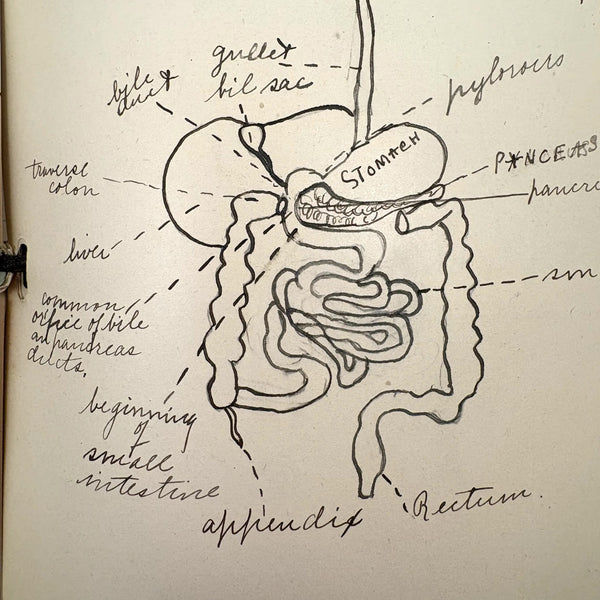 gullet
bile
duct
bil sac
pylorous
STOMACH
traverse
colon
PANCEASS
pancre
liver
common
orfice of bile
an pancreas
ducts,
beginning
of
small
intestine
appendix
Rectum.